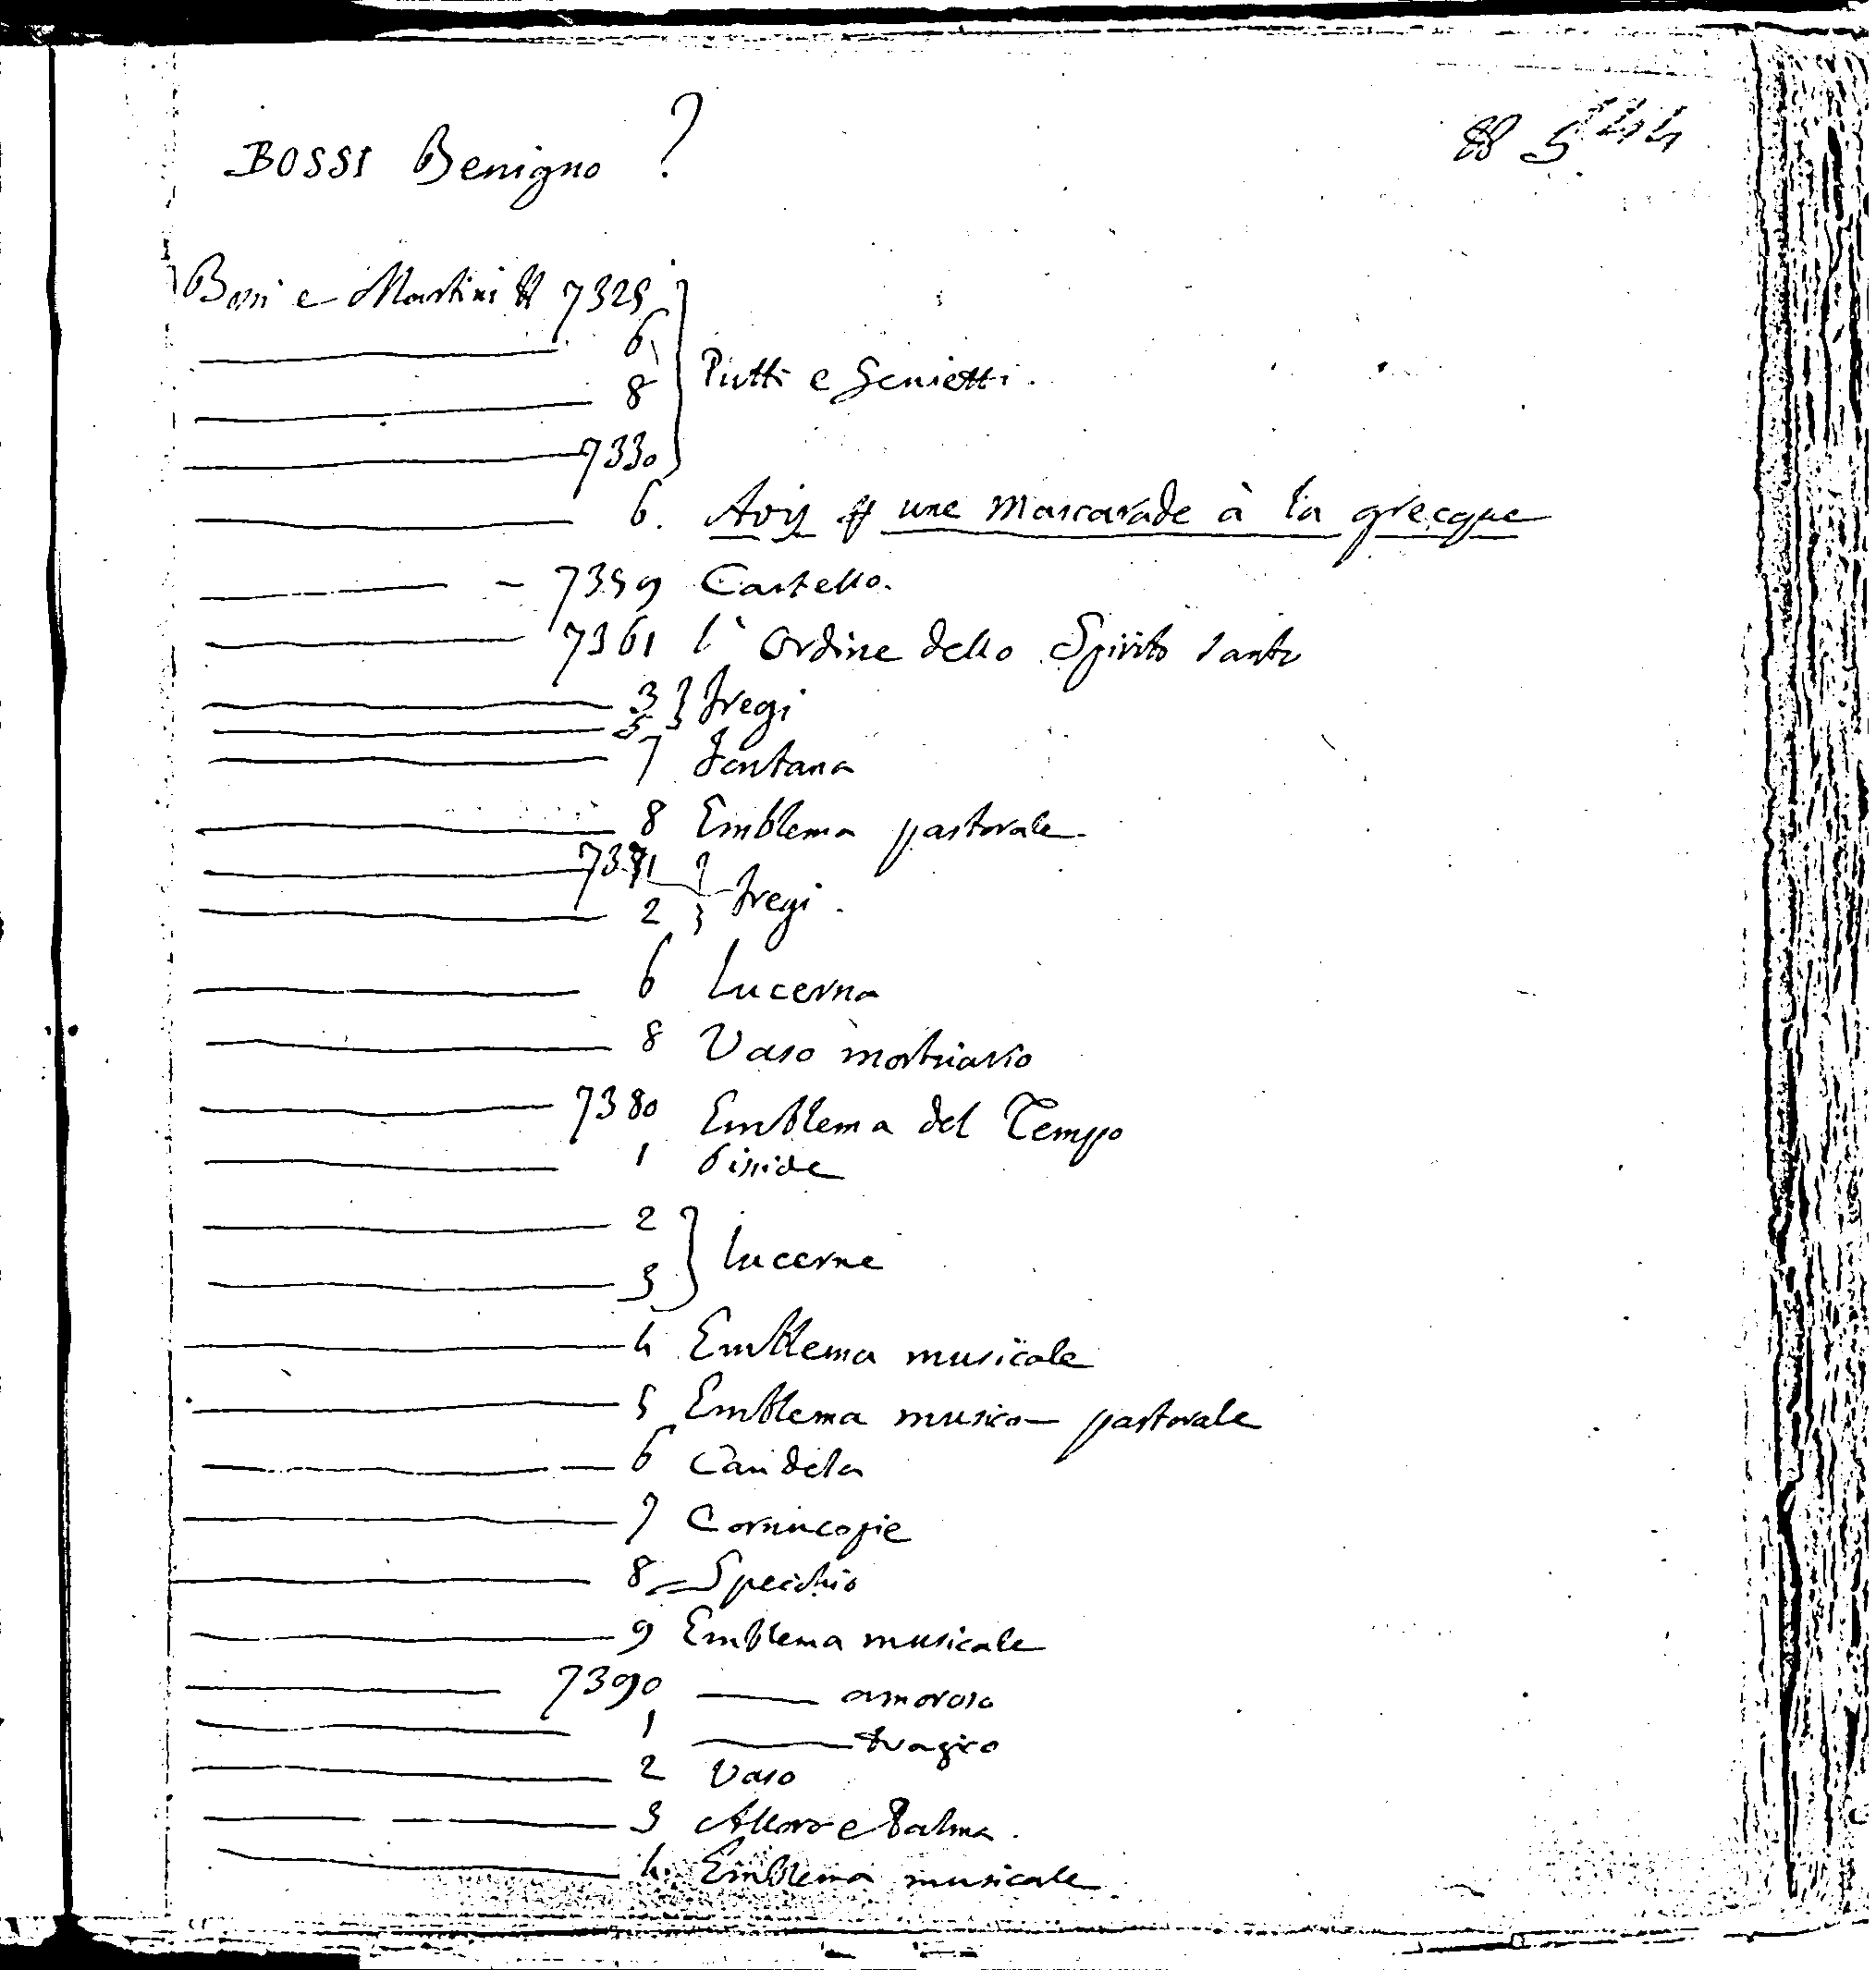 BOSSI Benigno ?
5544
Bossi e Martini 7325
6
8 Putti e Genietti.
7330
6. Avis une Mascarade à la grecque
7359 Castello.
7361 l' Ordine dello Spirito santo
3 fregi
5
7 fontana
8 Emblema pastorale
7371
2 fregi.
6 Lucerna
8 Vaso mortuario
7380 Emblema del Tempo
1 Pisside
2
3 lucerne
4 Emblema musicale
5 Emblema musico— pastorale
6 Candela
7 Cornucopie
8 Specchio
9 Emblema musicale
7390 —— amoroso
1 —— tragico
2 Vaso
3 Alloro e Palma.
4. Emblema musicale